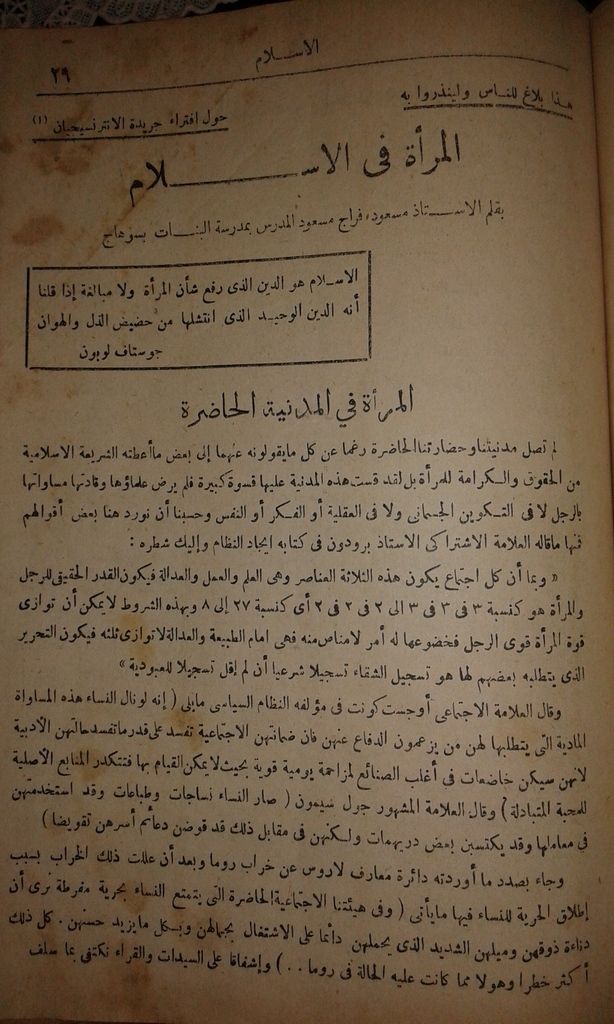 الاسلام
٢٩
هذا بلاغ للناس ولينذروا به
حول افتراء جريدة الانترنسيجيان (١)
المرأة فى الاسلام
بقلم الاستاذ مسعود فراج مسعود المدرس بمدرسة البنات بسوهاج
الاسلام هو الدين الذى رفع شأن المرأة ولا مبالغة إذا قلنا
أنه الدين الوحيد الذى انتشلها من حضيض الذل والهوان
جوستاف لوبون
المرأة في المدنية الحاضرة
لم تصل مدنيتنا وحضارتنا الحاضرة رغما عن كل مايقولونه عنهما إلى بعض ماأعطته الشريعة الاسلامية
من الحقوق والكرامة للمرأة بل لقد قست هذه المدنية عليها قسوة كبيرة فلم يرض علماؤها وقادتها مساواتها
بالرجل لا فى التكوين الجسمانى ولا فى العقلية أو الفكر أو النفس وحسبنا أن نورد هنا بعض أقوالهم
فمنها ماقاله العلامة الاشتراكى الاستاذ برودون فى كتابه ايجاد النظام وإليك شطره :
« وبما أن كل اجتماع يكون هذه الثلاثة العناصر وهى العلم والعمل والعدالة فيكون القدر الحقيقى للرجل
والمرأة هو كنسبة ٣ فى ٣ فى ٣ الى ٢ فى ٢ فى ٢ أى كنسبة ٢٧ إلى ٨ وبهذه الشروط لايمكن أن توازى
قوة المرأة قوى الرجل فخضوعها له أمر لامناص منه فهى امام الطبيعة والعدالة لاتوازى ثلثه فيكون التحرير
الذى يتطلبه بعضهم لها هو تسجيل الشقاء تسجيلا شرعيا أن لم أقل تسجيلا للعبودية »
وقال العلامة الاجتماعى أوجست كونت فى مؤلفه النظام السياسى مايلى ( إنه لو نال النساء هذه المساواة
المادية التى يتطلبها لهن من يزعمون الدفاع عنهن فان ضمانتهن الاجتماعية تفسد على قدر ماتفسد حالتهن الأدبية
لأنهن سيكن خاضعات فى أغلب الصنائع لمزاحمة يومية قوية بحيث لايمكن القيام بها فتتكدر المنابع الأصلية
للمحبة المتبادلة ) وقال العلامة المشهور جول سيمون ( صار النساء نساجات وطباعات وقد استخدمتهن
فى معاملها وقد يكتسبن بعض دريهمات ولكنهن فى مقابل ذلك قد قوضن دعائم أسرهن تقويضا )
وجاء بصدد ما أوردته دائرة معارف لاروس عن خراب روما وبعد أن عللت ذلك الخراب بسبب
إطلاق الحرية للنساء فيها مايأتى ( وفى هيئتنا الاجتماعية الحاضرة التى يتمتع النساء بحرية مفرطة نرى أن
دناءة ذوقهن وميلهن الشديد الذى يحملهن دائما على الاشتغال بجمالهن وبكل مايزيد حسنهن . كل ذلك
أكثر خطرا وهولا مما كانت عليه الحالة فى روما .. ) وإشفاقا على السيدات والقراء نكتفى بما سلف